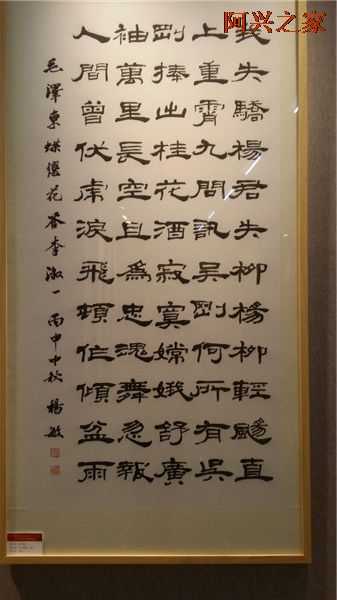 阿兴之家
我失驕楊君失柳楊柳輕颺直
上重霄九問訊吳剛何所有吳
剛捧出桂花酒寂寞嫦娥舒廣
袖萬里長空且為忠魂舞忽報
人間曾伏虎淚飛頓作傾盆雨
毛澤東蝶戀花答李淑一 丙申中秋 楊敏